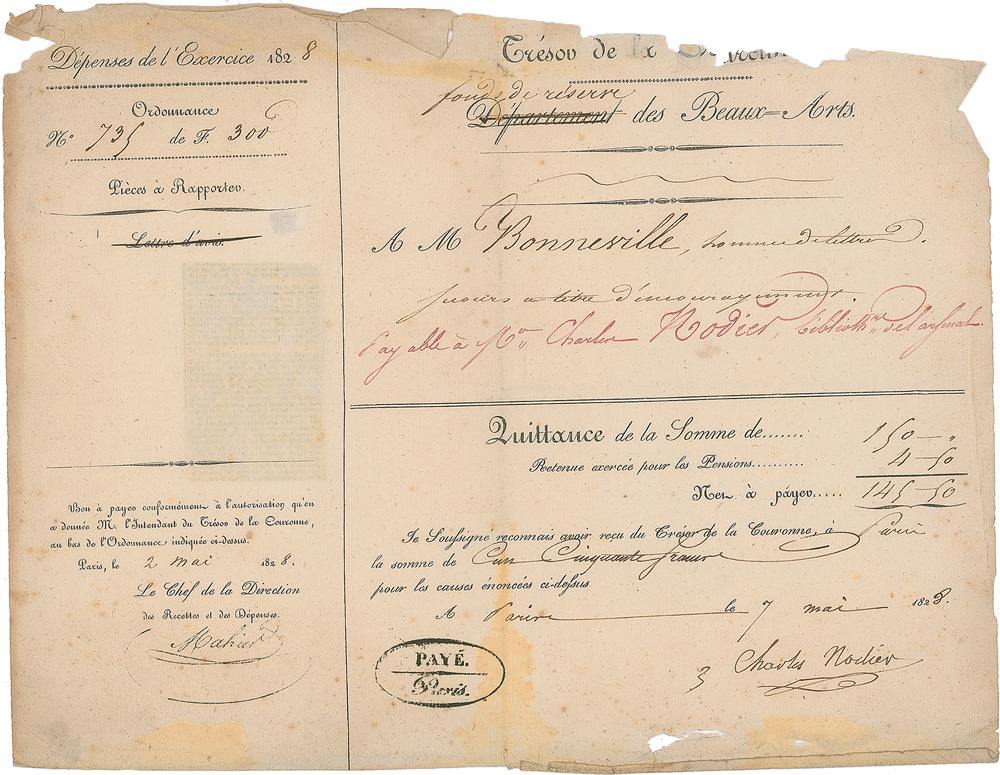 Dépenses de l'Exercice 1828
Ordonnance
N° 735 de F. 300
Pièces à Rapporter.
Lettre d'avis.
Bon à payer conformément à l'autorisation qu'en
a donnée M. l'Intendant du Trésor de la Couronne,
au bas de l'Ordonnance indiquée ci-dessus.
Paris, le 2 mai 1828.
Le Chef de la Direction
des Recettes et des Dépenses.
Mahier
Trésor de la
fonds de réserve
Département des Beaux=Arts.
A M Bonneville, homme de lettres.
secours à titre d'encouragement.
Payable à Mr Charles Nodier, biblioth.re de l'arsenal
Quittance de la Somme de....... 150 — "
Retenue exercée pour les Pensions.......... 4 — 50
Net à payer..... 145 — 50
Je Soussigné reconnais avoir reçu du Trésor de la Couronne, à Paris
la somme de Cent Cinquante francs
pour les causes énoncées ci-dessus
A Paris le 7 mai 1828.
Charles Nodier
PAYÉ.
Paris.